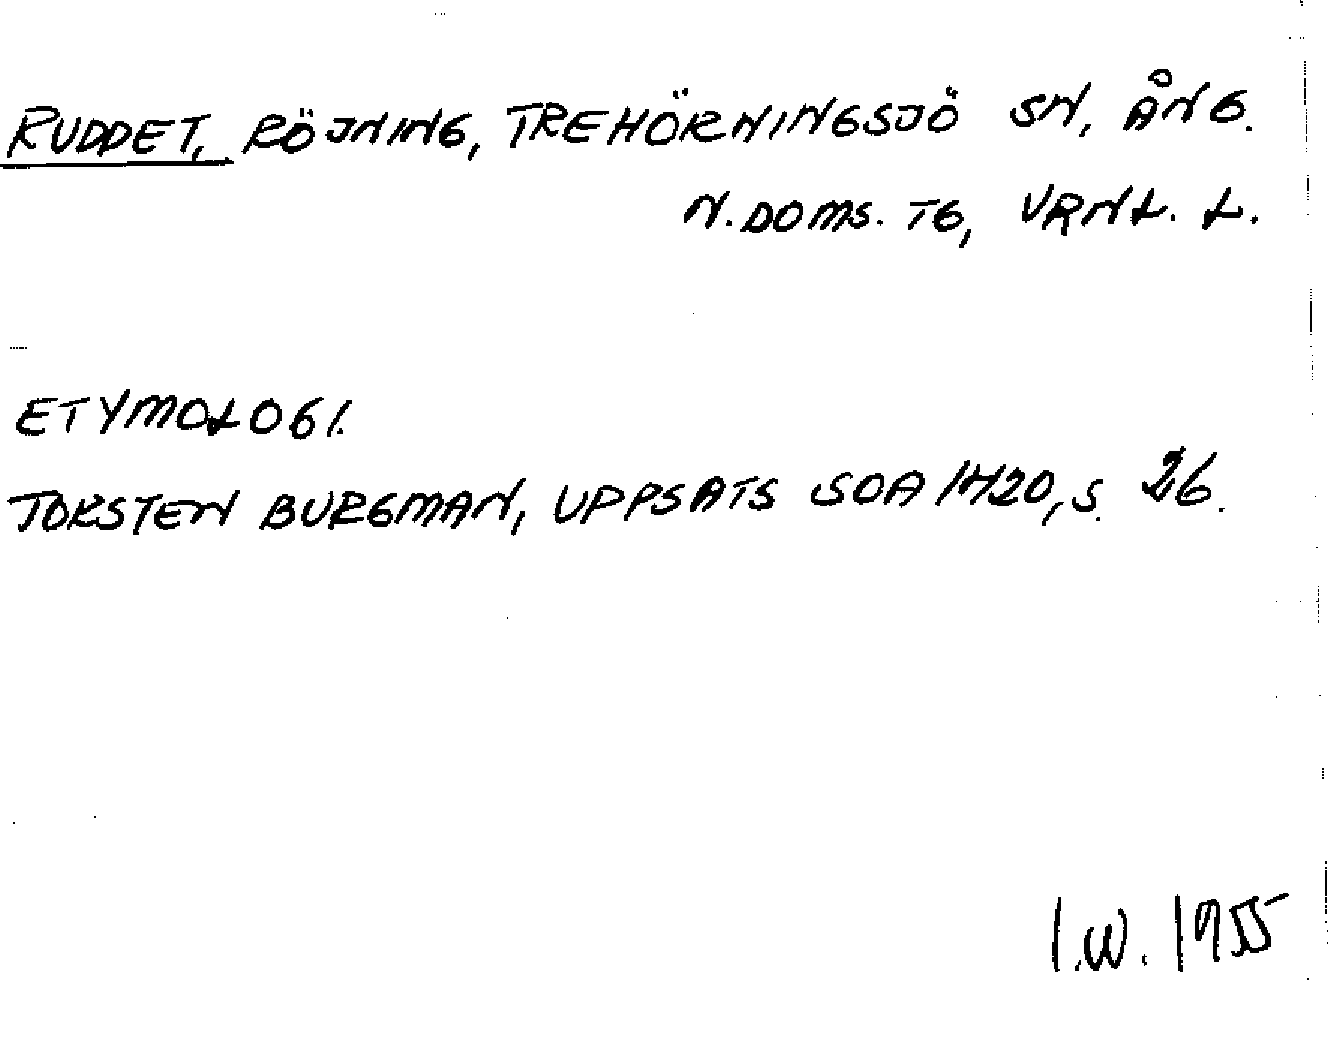 RUDDET, RÖJNING, TREHÖRNINGSJÖ SN, ÅNG.
N. DOMS. TG, VRNL. L.
ETYMOLOGI.
TORSTEN BURGMAN, UPPSATS SOA 1420, S. 26.
I.W. 1955